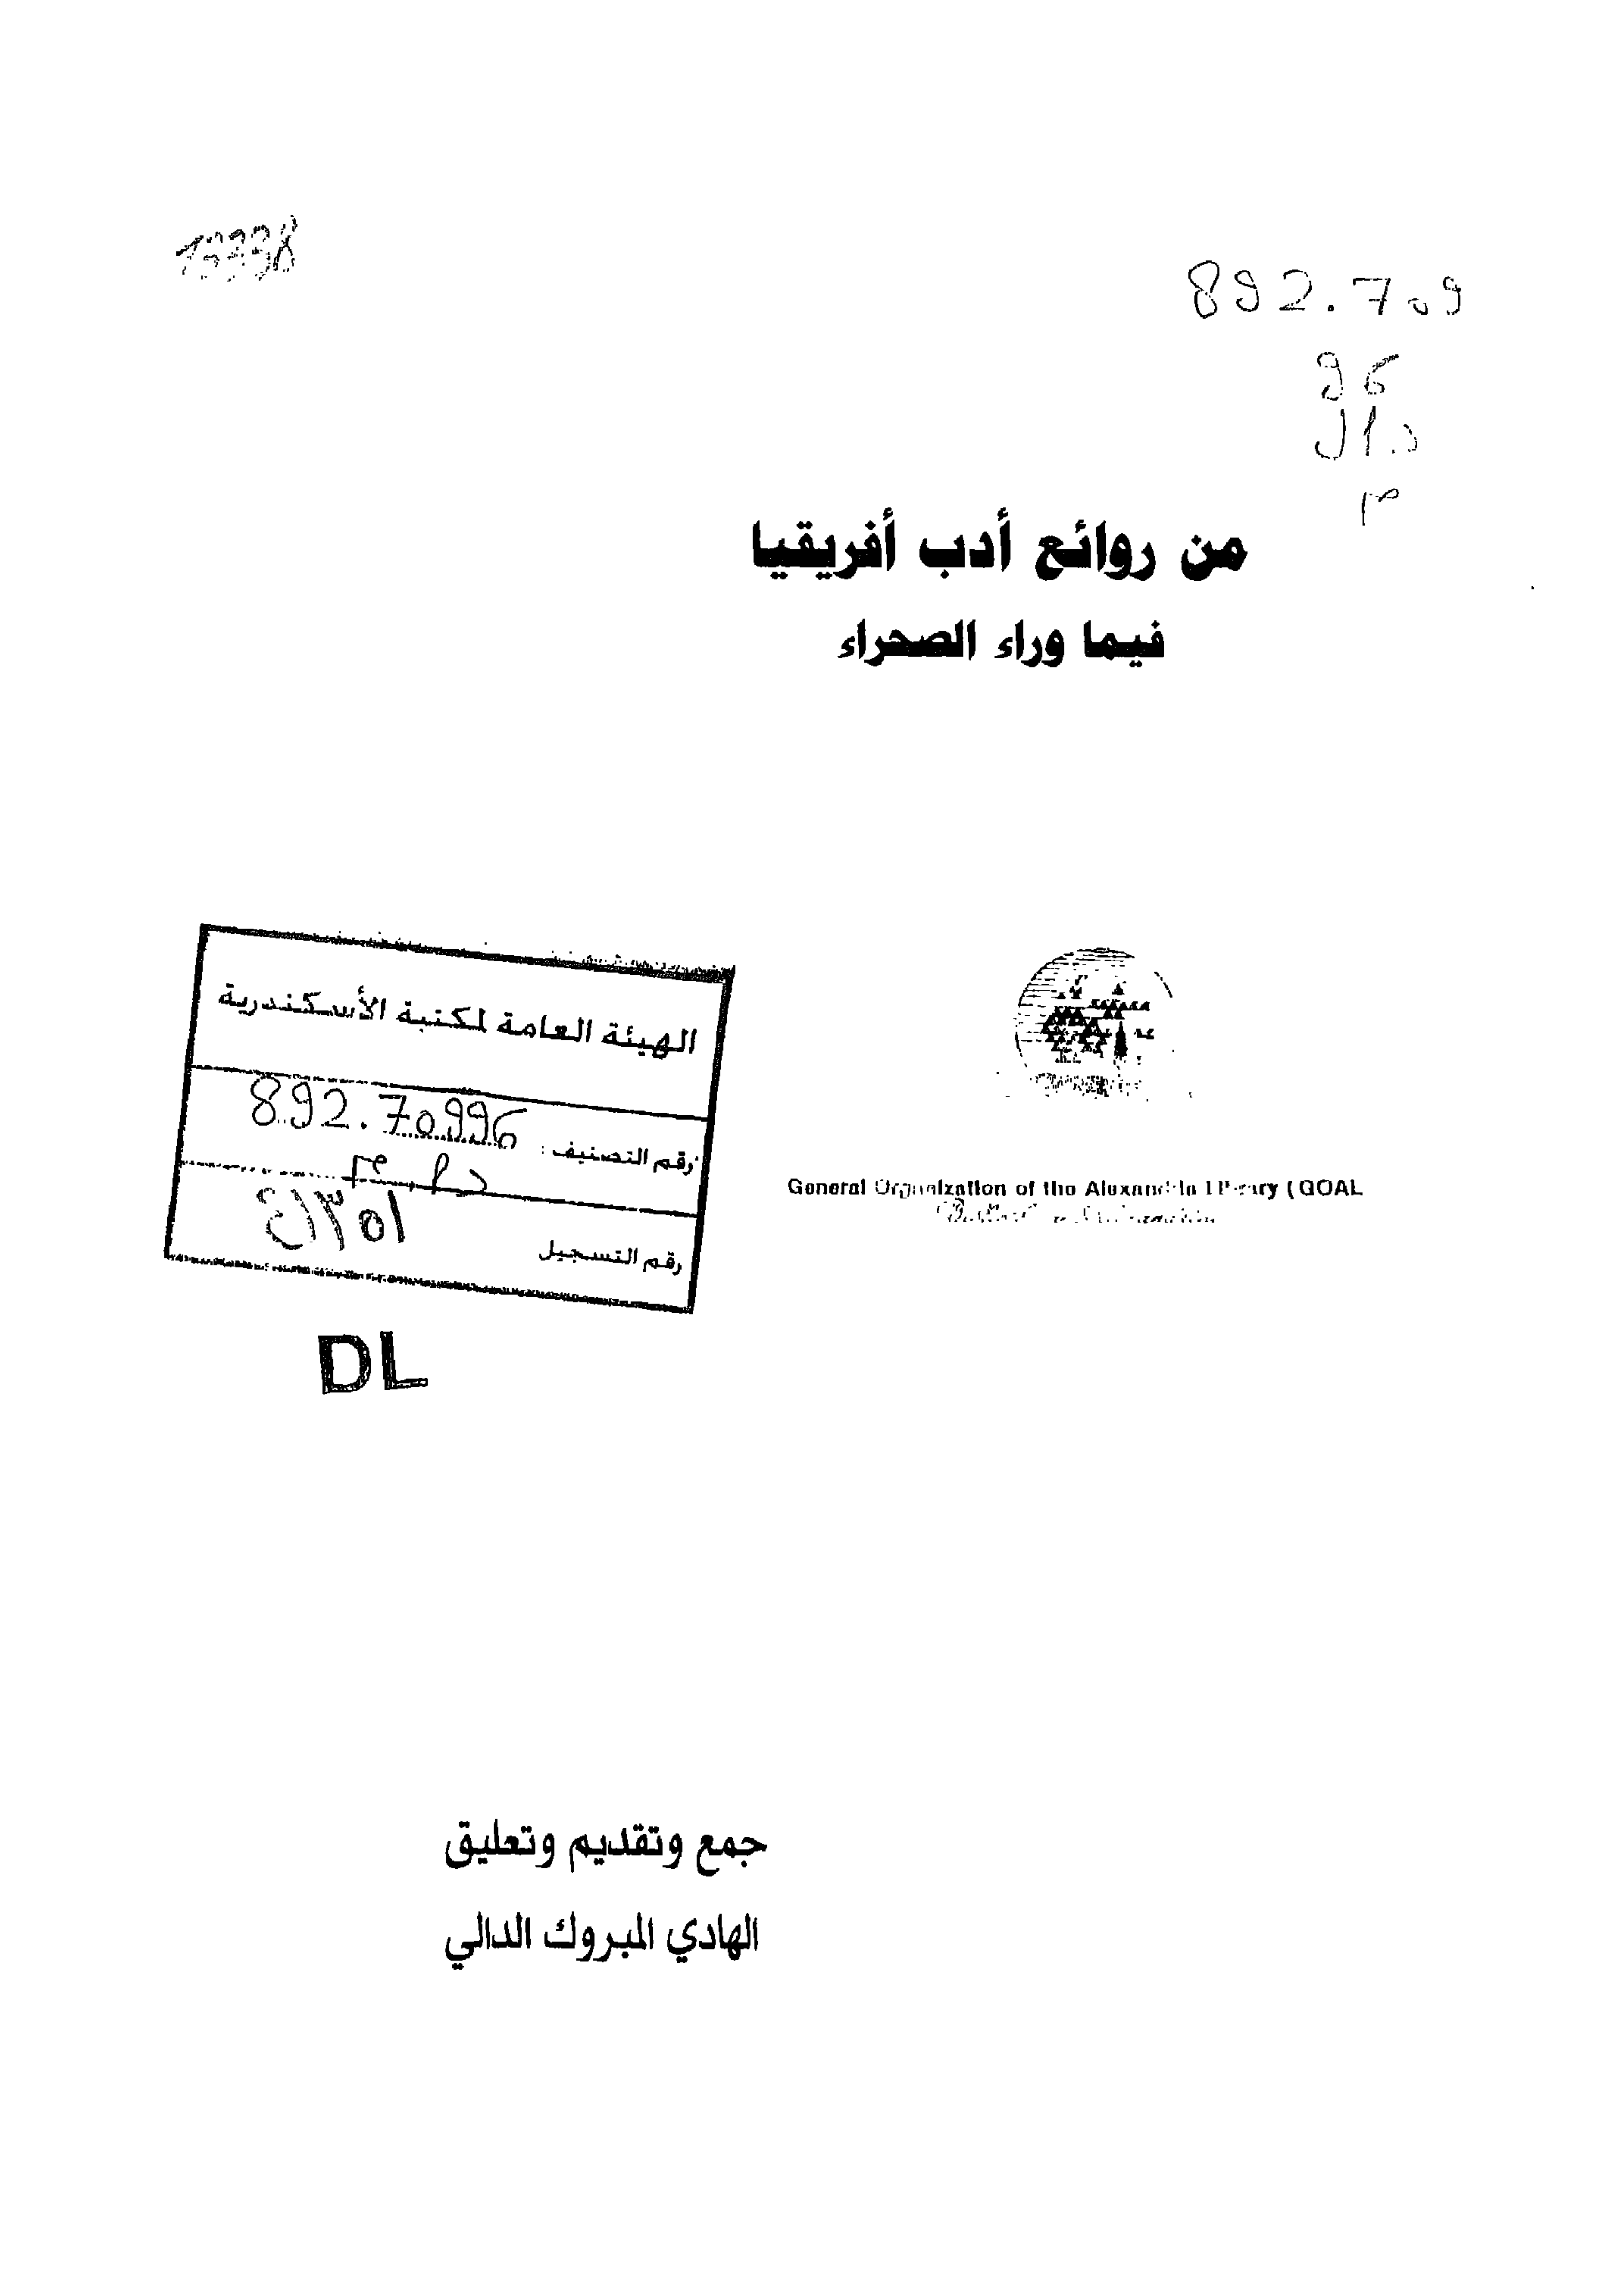 892.709
96
د.ال
م
من روائع أدب أفريقيا
فيما وراء الصحراء
الهيئة العامة لمكتبة الأسكندرية
رقم التصنيف : 892.70996
د ا . م
رقم التسجيل
General Organization of the Alexandria Library (GOAL
DL
جمع وتقديم وتعليق
الهادي المبروك الدالي